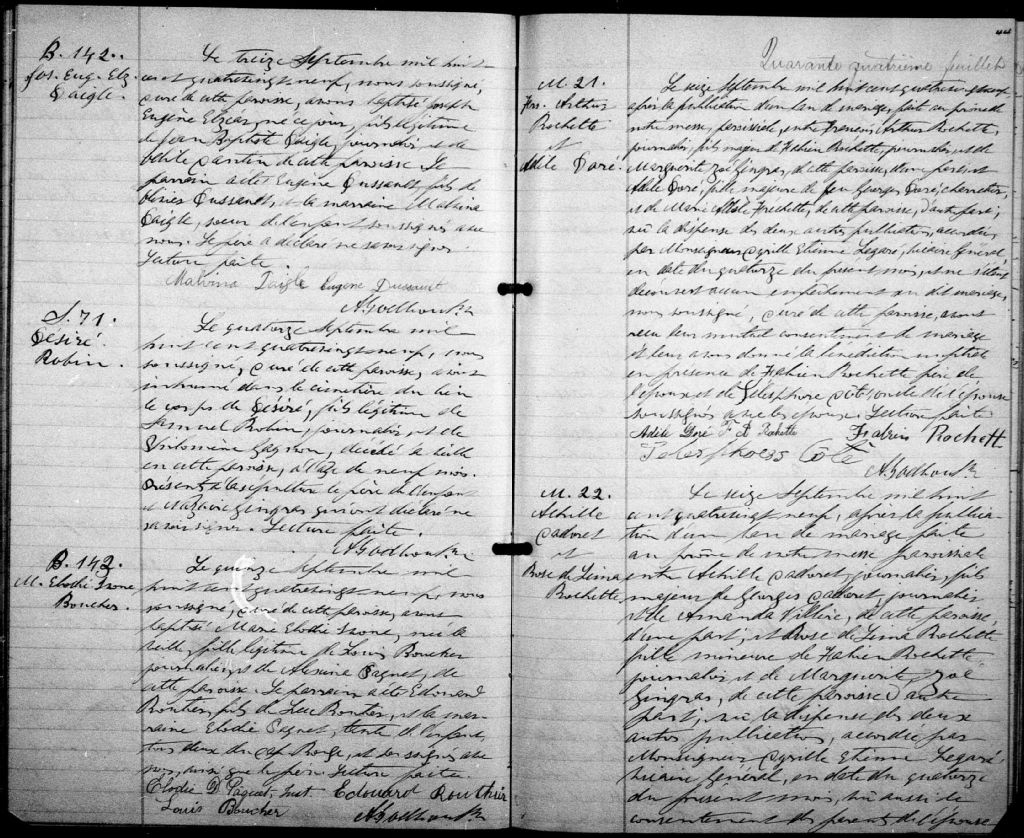 B. 142.
Jos. Eug. Elz.
Daigle.
Le treize Septembre mil huit
cent quatrevingt neuf, nous soussigné,
curé de cette paroisse, avons baptisé Joseph
Eugène Elzéar, né ce jour, fils légitime
de Jean Baptiste Daigle, journalier, et de
Cantin de cette paroisse. Le
parrain a été Eugène Dussault, fils de
Dussault, et la marraine Malvina
Daigle, soeur de l'enfant soussignés avec
nous. Le père a déclaré ne savoir signer.
Lecture faite.
Malvina Daigle Eugène Dussault
A. Godbout Ptr
S. 71.
Désiré
Robin.
Le quatorze Septembre mil
huit cent quatrevingt neuf, nous
soussigné, curé de cette paroisse, avons
inhumé dans le cimetière du lieu
le corps de Désiré, fils légitime de
Samuel Robin, journalier, et de
Philomène Gagnon, décédé la veille
en cette paroisse, à l'âge de neuf mois.
Présents à la sépulture le père de l'enfant
et Nazaire Gingras qui ont déclaré ne
savoir signer. Lecture faite.
A. Godbout Ptr
B. 142.
M. Elodie Irone
Boucher.
Le quinze Septembre mil
huit cent quatrevingt neuf, nous
soussigné, curé de cette paroisse, avons
baptisé Marie Elodie Irone, née la
veille, fille légitime de Louis Boucher
journalier, et de Paquet, de
cette paroisse. Le parrain a été Edouard
Routier, fils de Luc Routier, et la mar-
raine Elodie Paquet, tante de l'enfant,
tous deux du Cap Rouge, et soussignés avec
nous, ainsi que le père. Lecture faite.
Elodie D Paquet Inst Edouard Routhier
Louis Boucher
A. Godbout Ptr
44
Quarante quatrième feuillet
M. 21.
Frs. Arthur
Rochette
et
Adèle Doré.
Le seize Septembre mil huit cent quatrevingt neuf
après la publication d'un ban de mariage, faite au prône de
notre messe paroissiale, entre François Arthur Rochette,
journalier, fils majeur de Fabien Rochette, journalier, et de
Marguerite Zoé Gingras, de cette paroisse, d'une part, et
Adèle Doré, fille majeure de feu Georges Doré, charretier,
et de Marie Adèle Frichette, de cette paroisse, d'autre part,
vu la dispense des deux autres publications, accordée
par Monseigneur Cyrille Etienne Legaré, Vicaire Général,
en date du quatorze du présent mois, et ne s'étant
découvert aucun empêchement au dit mariage,
nous soussigné, curé de cette paroisse, avons
reçu leur mutuel consentement de mariage
et leur avons donné la bénédiction nuptiale
en présence de Fabien Rochette père de
l'époux et de Télesphore Côté oncle de l'épouse
soussignés avec les époux. Lecture faite
Adèle Doré F A Rochette Fabien Rochett
Telesphoess Côté
A. Godbout Ptr
M. 22.
Achille
Cadoret
et
Rose de Lima
Rochette
Le seize Septembre mil huit
cent quatrevingt neuf, après la publica-
tion d'un ban de mariage faite
au prône de notre messe paroissiale
entre Achille Cadoret, journalier, fils
majeur de Georges Cadoret, journalier
et de Amanda Villière, de cette paroisse,
d'une part, et Rose de Lima Rochette
fille mineure de Fabien Rochette
journalier et de Marguerite Zoé
Gingras, de cette paroisse d'autre
part, vu la dispense des deux
autres publications, accordée par
Monseigneur Cyrille Etienne Legaré
Vicaire Général, en date du quatorze
du présent mois, vu aussi le
consentement des parents de l'épouse